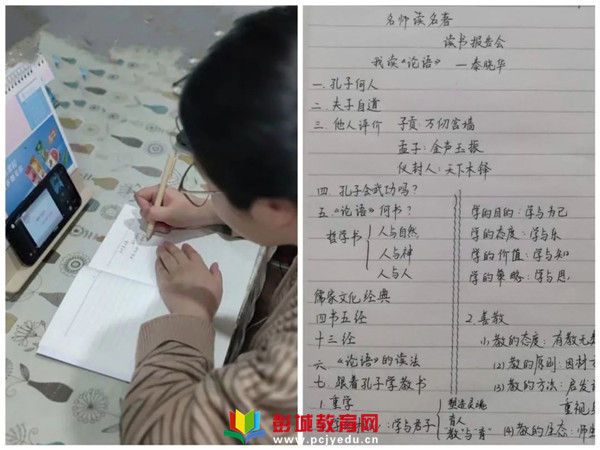 名师读名著
读书报告会
我读《论语》 —秦晓华
一.孔子何人
二.夫子自道
三.他人评价 子贡:万仞宫墙
孟子:金声玉振
仪封人:天下木铎
四.孔子会武功吗?
五.《论语》何书?
哲学书 人与自然
人与神
人与人
儒家文化经典
四书五经
十三经
六.《论语》的读法
七.跟着孔子学教书
1.重学
学与君子
学的目的:学与为己
学的态度:学与乐
学的价值:学与知
学的策略:学与思
2.善教
(1)教的态度:有教无
(2)教的原则:因材
(3)教的方法:启发
塑造灵魂
育人
"教"与"育"
重视
(4)教的生态:师生
彭城教育网
www.pcjyedu.cn